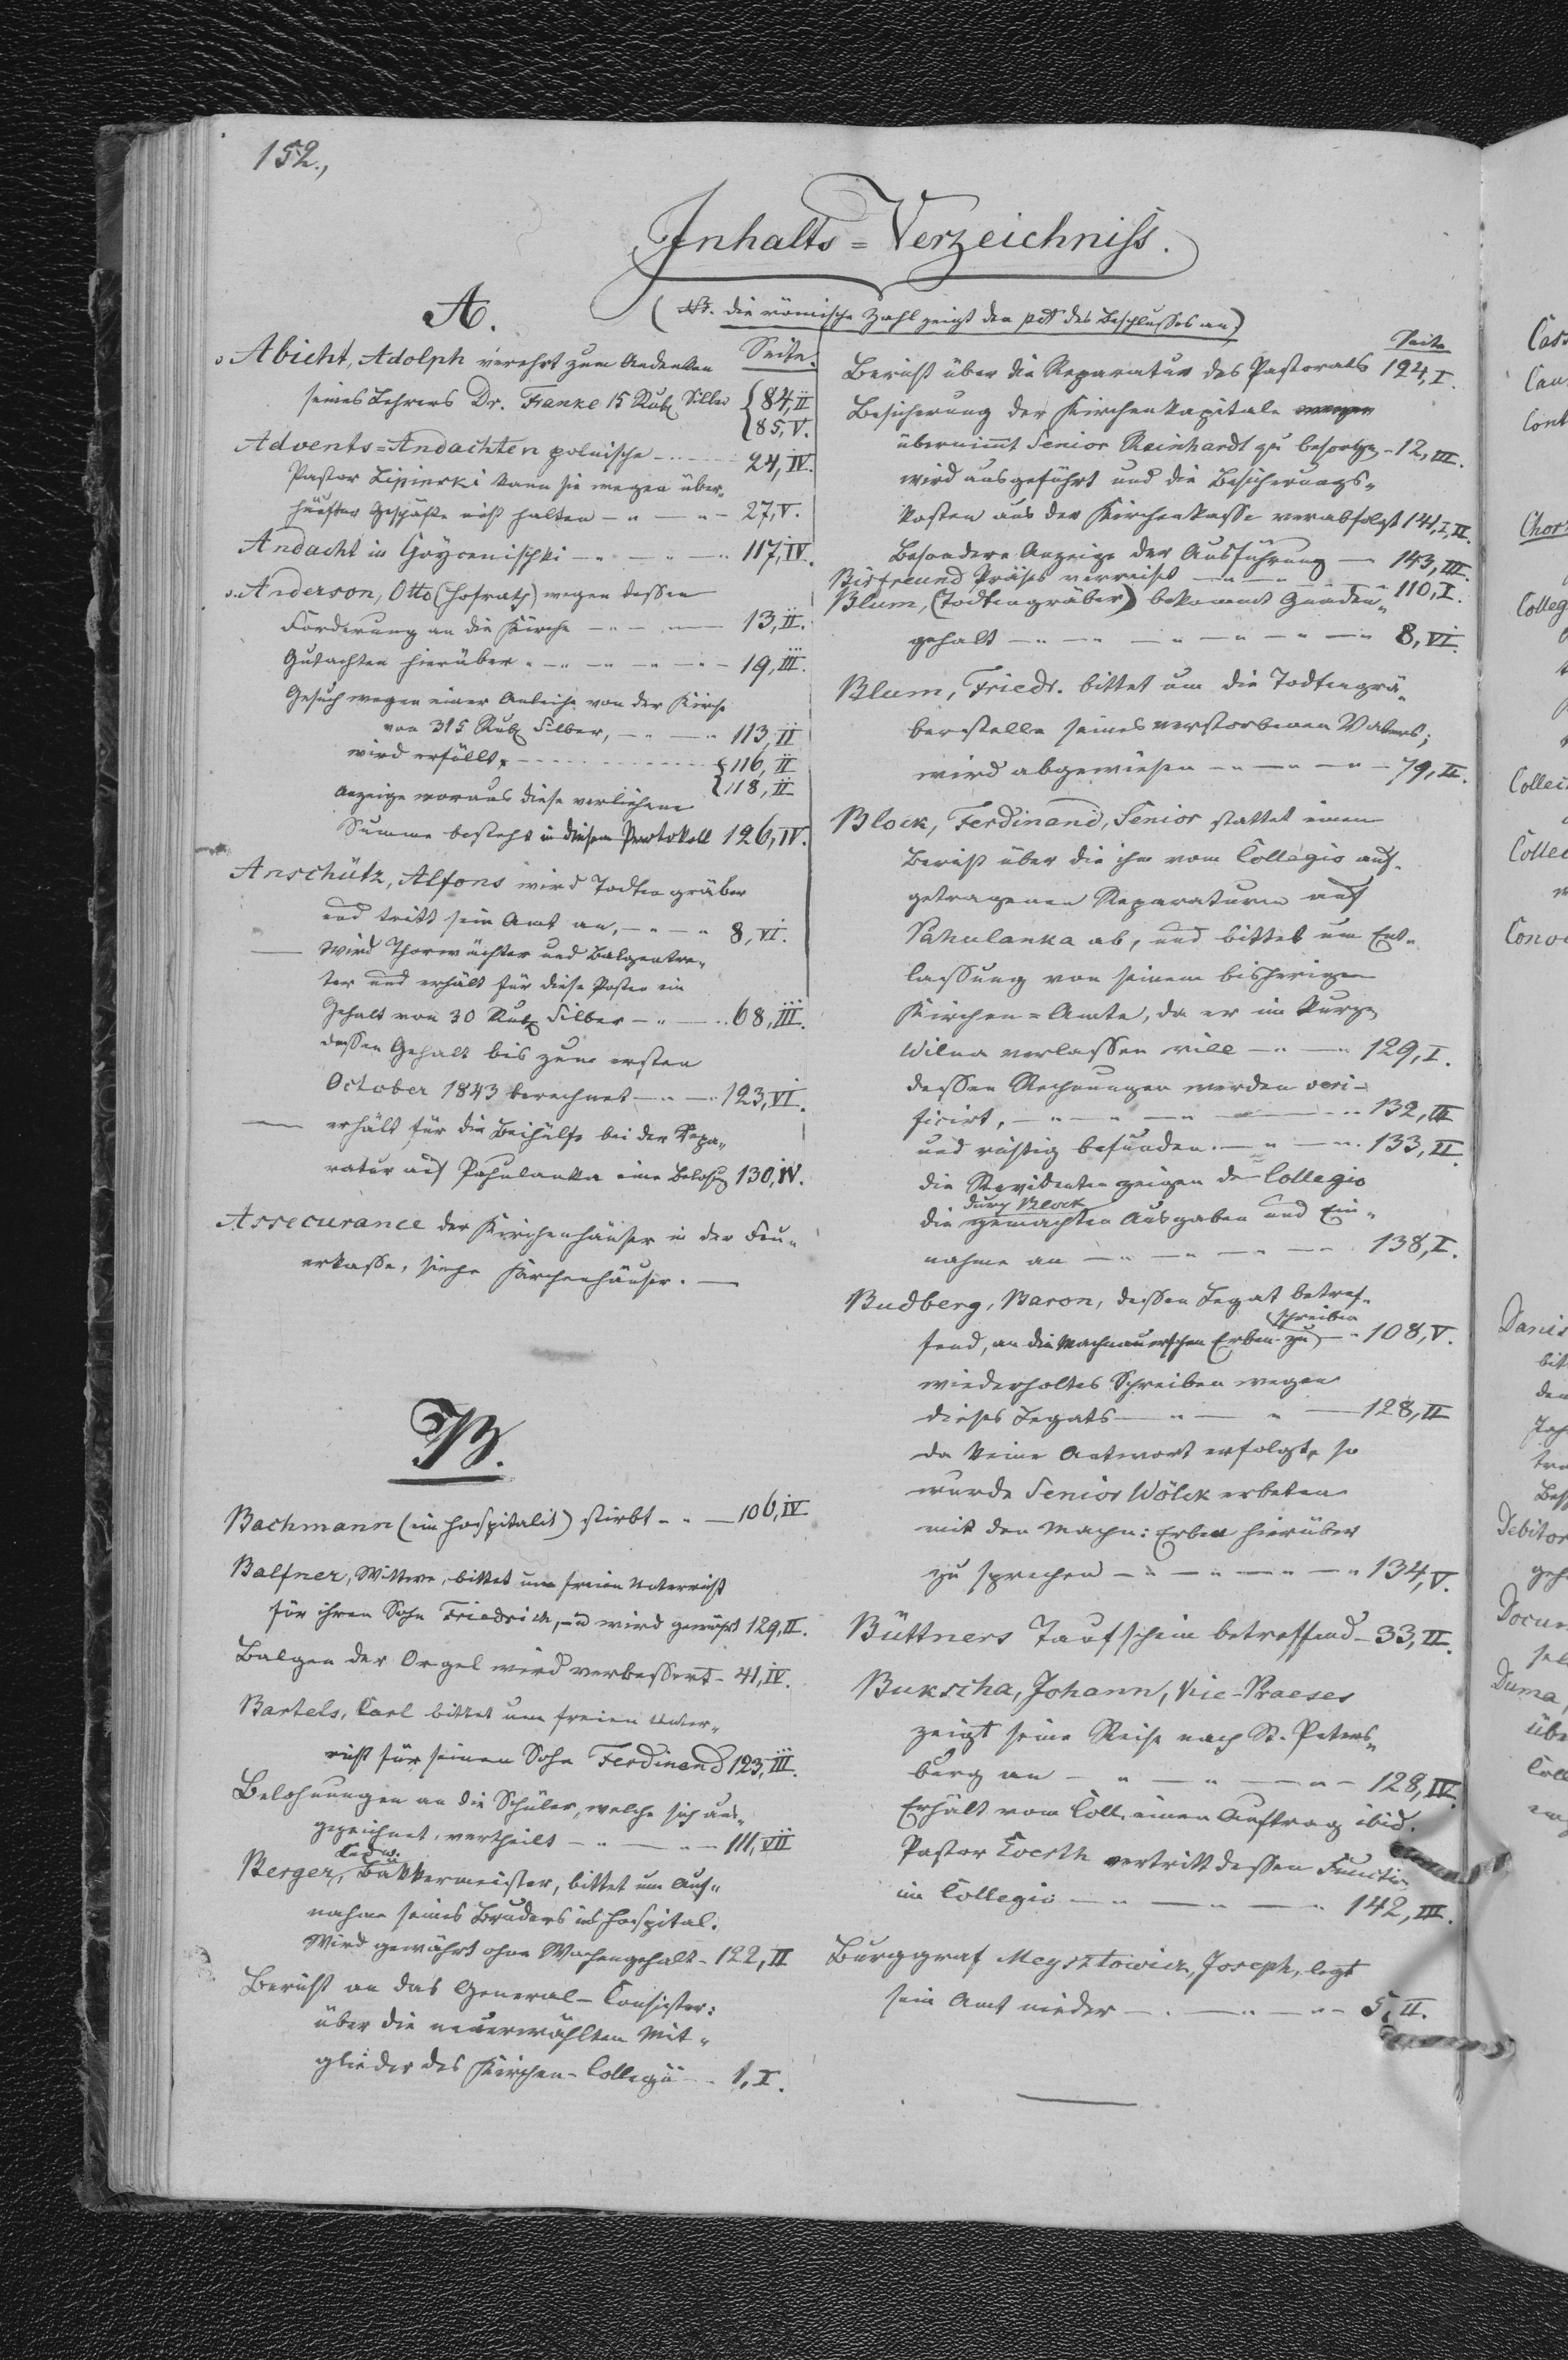 152.,
Inhalts=Verzeichniss.
(NB. die römische Zahl zeigt den pct des Beschlusses an)
A.
Seite.
Abicht, Adolph verehrt zum Andenken
seines Lehrers Dr. Franke 15 Rub Silber {84, II
{85, V.
Advents=Andachten polnische - 24, IV.
Pastor Lipinski kann sie wegen über„
häufter Geschäfte nicht halten - 27, V.
Andacht in Goycenischki - 117, IV.
Anderson, Otto (Hofrath) wegen dessen
Forderung an die Kirche - 13, II.
Gutachten hierüber - 19, III.
Gesuch wegen einer Anleihe von der Kirche
von 315 Rub Silber, - 113, II
wird erfüllt, - {116, II
{118, II
Anzeige woraus diese verliehene
Summe besteht in diesem Protokoll 126, IV.
Anschütz, Alfons wird Todtengräber
und tritt sein Amt an, - 8, VI.
— wird Thorwächter und Balgentre„
ter und erhält für diese Posten ein
Gehalt von 30 Rub Silber - 68, III.
dessen Gehalt bis zum ersten
October 1843 berechnet - 123, VI.
— erhält für die Beihülfe bei der Repa„
ratur auf Pohulanka eine Belohng 130, IV.
Assecurance der Kirchenhäuser in der Feu„
erkasse, siehe Kirchenhäuser. —
B.
Bachmann (im Hospitalit) stirbt - 106, IV
Balfner, Wittwe, bittet um freien Unterricht
für ihren Sohn Friedrich, - wird gewährt 129, II.
Balgen der Orgel wird verbessert - 41, IV.
Bartels, Carl bittet um freien Unter„
richt für seinen Sohn Ferdinand 123, III.
Belohnungen an die Schüler, welche sich aus„
gezeichnet, vertheilt - 111, VII
Berger, Bäckermeister, bittet um Auf„
nahme seines Bruders ins Hospital.
Wird gewährt ohne Wochengehalt - 122, II
Bericht an das General-Consister:
über die neuerwählten Mit„
glieder des Kirchen-Collegii - 1, I.
Seite
Bericht über die Reparatur des Pastorats 124, I.
Besicherung der Kirchenkapitale
übernimmt Senior Reinhardt zu besorgen - 12, III.
wird ausgeführt und die Besicherungs„
kosten aus der Kirchenkasse verabfolgt 141, I, II.
Besondere Anzeige der Ausführung — 143, III.
Bisfreund Präses verreiset - 110, I.
Blum, (Todtengräber) bekommt Gnaden„
gehalt - 8, VI.
Blum, Friedr. bittet um die Todtengrä„
berstelle seines verstorbenen Vaters;
wird abgewiesen - 79, II.
Block, Ferdinand, Senior stattet einen
Bericht über die ihm vom Collegio auf„
getragenen Reparaturen auf
Pohulanka ab, und bittet um Ent„
lassung von seinem bisherigen
Kirchen=Amte, da er in Kurzem
Wilna verlassen will - 129, I.
dessen Rechnungen werden veri-
ficirt, - 132, III
und richtig befunden. - 133, II.
die Revidenten zeigen dem Collegio
durch Block
die gemachten Ausgaben und Ein„
nahme an - 138, I.
Budberg, Baron, dessen Legat betref„
schreiben
fend, an die Machnauerschen Erben zu - 108, V.
wiederholtes Schreiben wegen
dieses Legats - 128, II
da keine Antwort erfolgt, so
wurde Senior Wölck erbeten
mit den Machn: Erben hierüber
zu sprechen - 134, V.
Büttners Taufschein betreffend - 33, II.
Bukscha, Johann, Vice-Praeses
zeigt seine Reise nach St. Peters„
burg an - 128, IV.
Erhält vom Coll. einen Auftrag ibid.
Pastor Loesth vertritt dessen Function
im Collegio - 142, III.
Burggraf Meysztowicz, Joseph, legt
sein Amt nieder - 5, II.